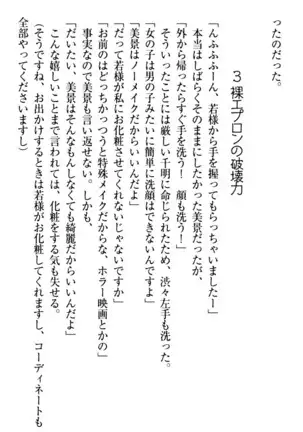 ったのだった。
３ 裸エプロンの破壊力
「んふふふーん、若様から手を握ってもらっちゃいましたー」
本当はしばらくそのままにしたかった美景だったが、
「外から帰ったらすぐ手を洗う！　顔も洗う！」
そういったことには厳しい千明に命じられたため、渋々左手も洗った。
「女の子は男の子みたいに簡単に洗顔はできないんですよ」
「美景はノーメイクだからいいんだよ」
「だって若様が私にお化粧させてくれないじゃないですか」
「お前のはどっちかっつうと特殊メイクだからな、ホラー映画とかの」
事実なので美景も言い返せない。しかも、
「だいたい、美景はそんなもんしなくても綺麗だからいいんだよ」
こんな嬉しいことまで言われては、化粧をする気も失せる。
（そうですね、お出かけするときは若様がお化粧してくれますし、コーディネートも
全部やってくださいますし）